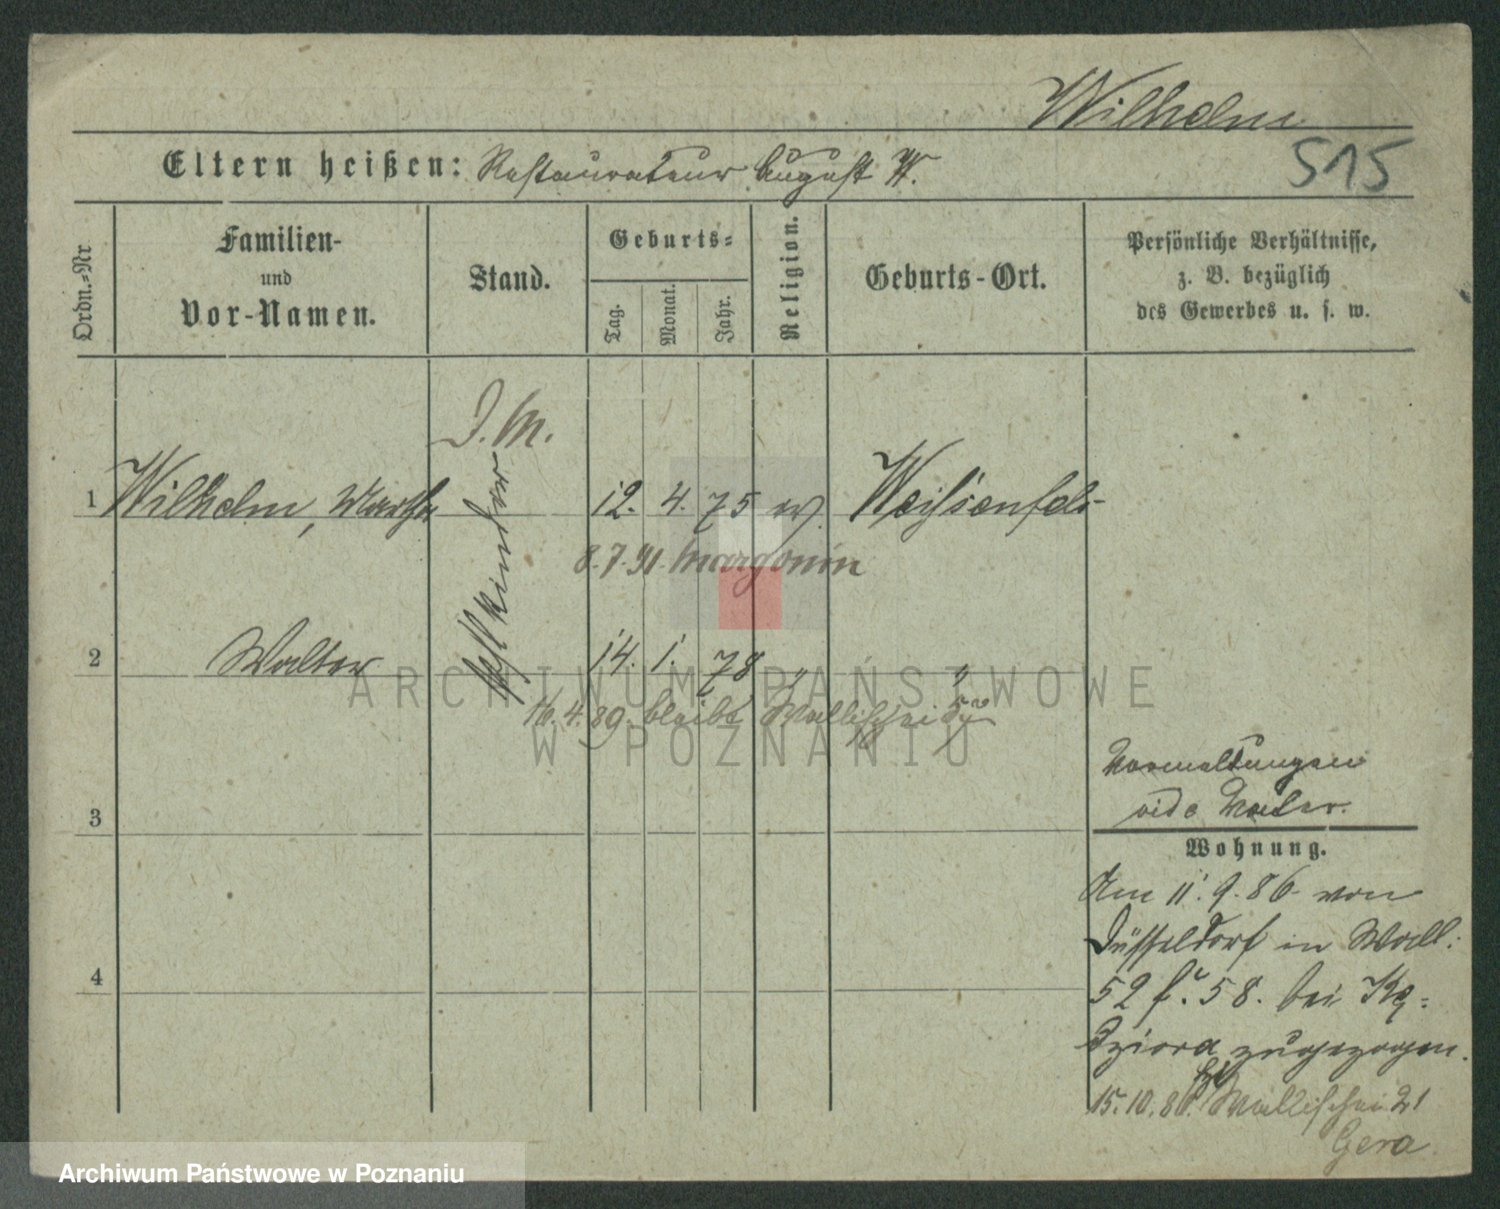 Wilhelm
515
Eltern heißen: Restaurateur August W.
Ordn.-Nr
Familien-
und
Vor-Namen.
Stand.
Geburts-
Tag.
Monat.
Jahr.
Religion.
Geburts-Ort.
Persönliche Verhältnisse,
z. B. bezüglich
des Gewerbes u. s. w.
J. M.
1 Wilhelm, Martha 12. 4. 75 ev. Weißenfels
kinder
8.7.91. Margonin
2 Walter 14. 1. 78 " "
ARCHIWUM PAŃSTWOWE
16.4.89. bleibt Wallischei
W POZNANIU
vide Vater.
3
Wohnung.
Am 11.9.86 von
Düsseldorf in Wall:
4
52 58. bei
Dziora zugezogen.
15.10.86. Wallischei 21
Gera
Archiwum Państwowe w Poznaniu